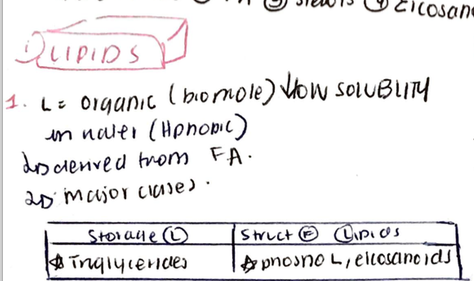 ③ steroids ④ Eicosan
① LIPIDS
1. L = organic (biomole) ↓low SOLUBLITY
in water (Hphobic)
↳ derived from FA.
↳ major classes.
Storage Ⓛ | Struct Ⓕ Ⓛipids
☆ Triglycerides | ☆ phospho L, eicosanoids